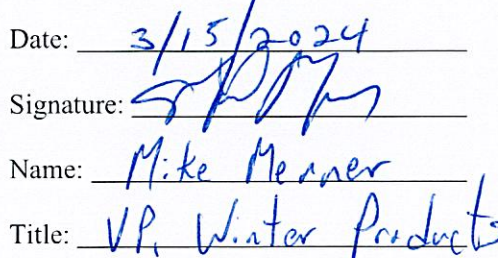 Date: 3/15/2024
Signature:
Name: Mike Menner
Title: VP, Winter Products